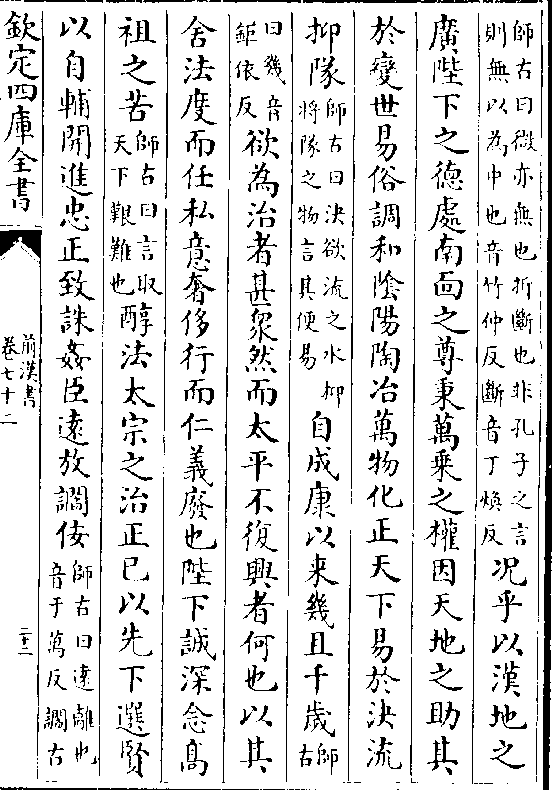 師古曰微亦無也折斷也非孔子之言
則無以為中也音竹仲反斷音丁煥反
况乎以漢地之
廣陛下之德處南面之尊秉萬乗之權因天地之助其
於變世易俗調和隂陽陶冶萬物化正天下易於決流
抑隊
師古曰決欲流之水抑
將隊之物言其便易
自成康以来幾且千歲
師古
曰幾音
鉅依反
欲為治者甚衆然而太平不復興者何也以其
舍法度而任私意奢侈行而仁義廢也陛下誠深念髙
祖之苦
師古曰言取
天下艱難也
醇法太宗之治正已以先下選賢
以自輔開進忠正致誅姦臣遠放讇佞
師古曰遠離也
音于萬反讇古
欽定四庫全書
前漢書
卷七十二
二十二